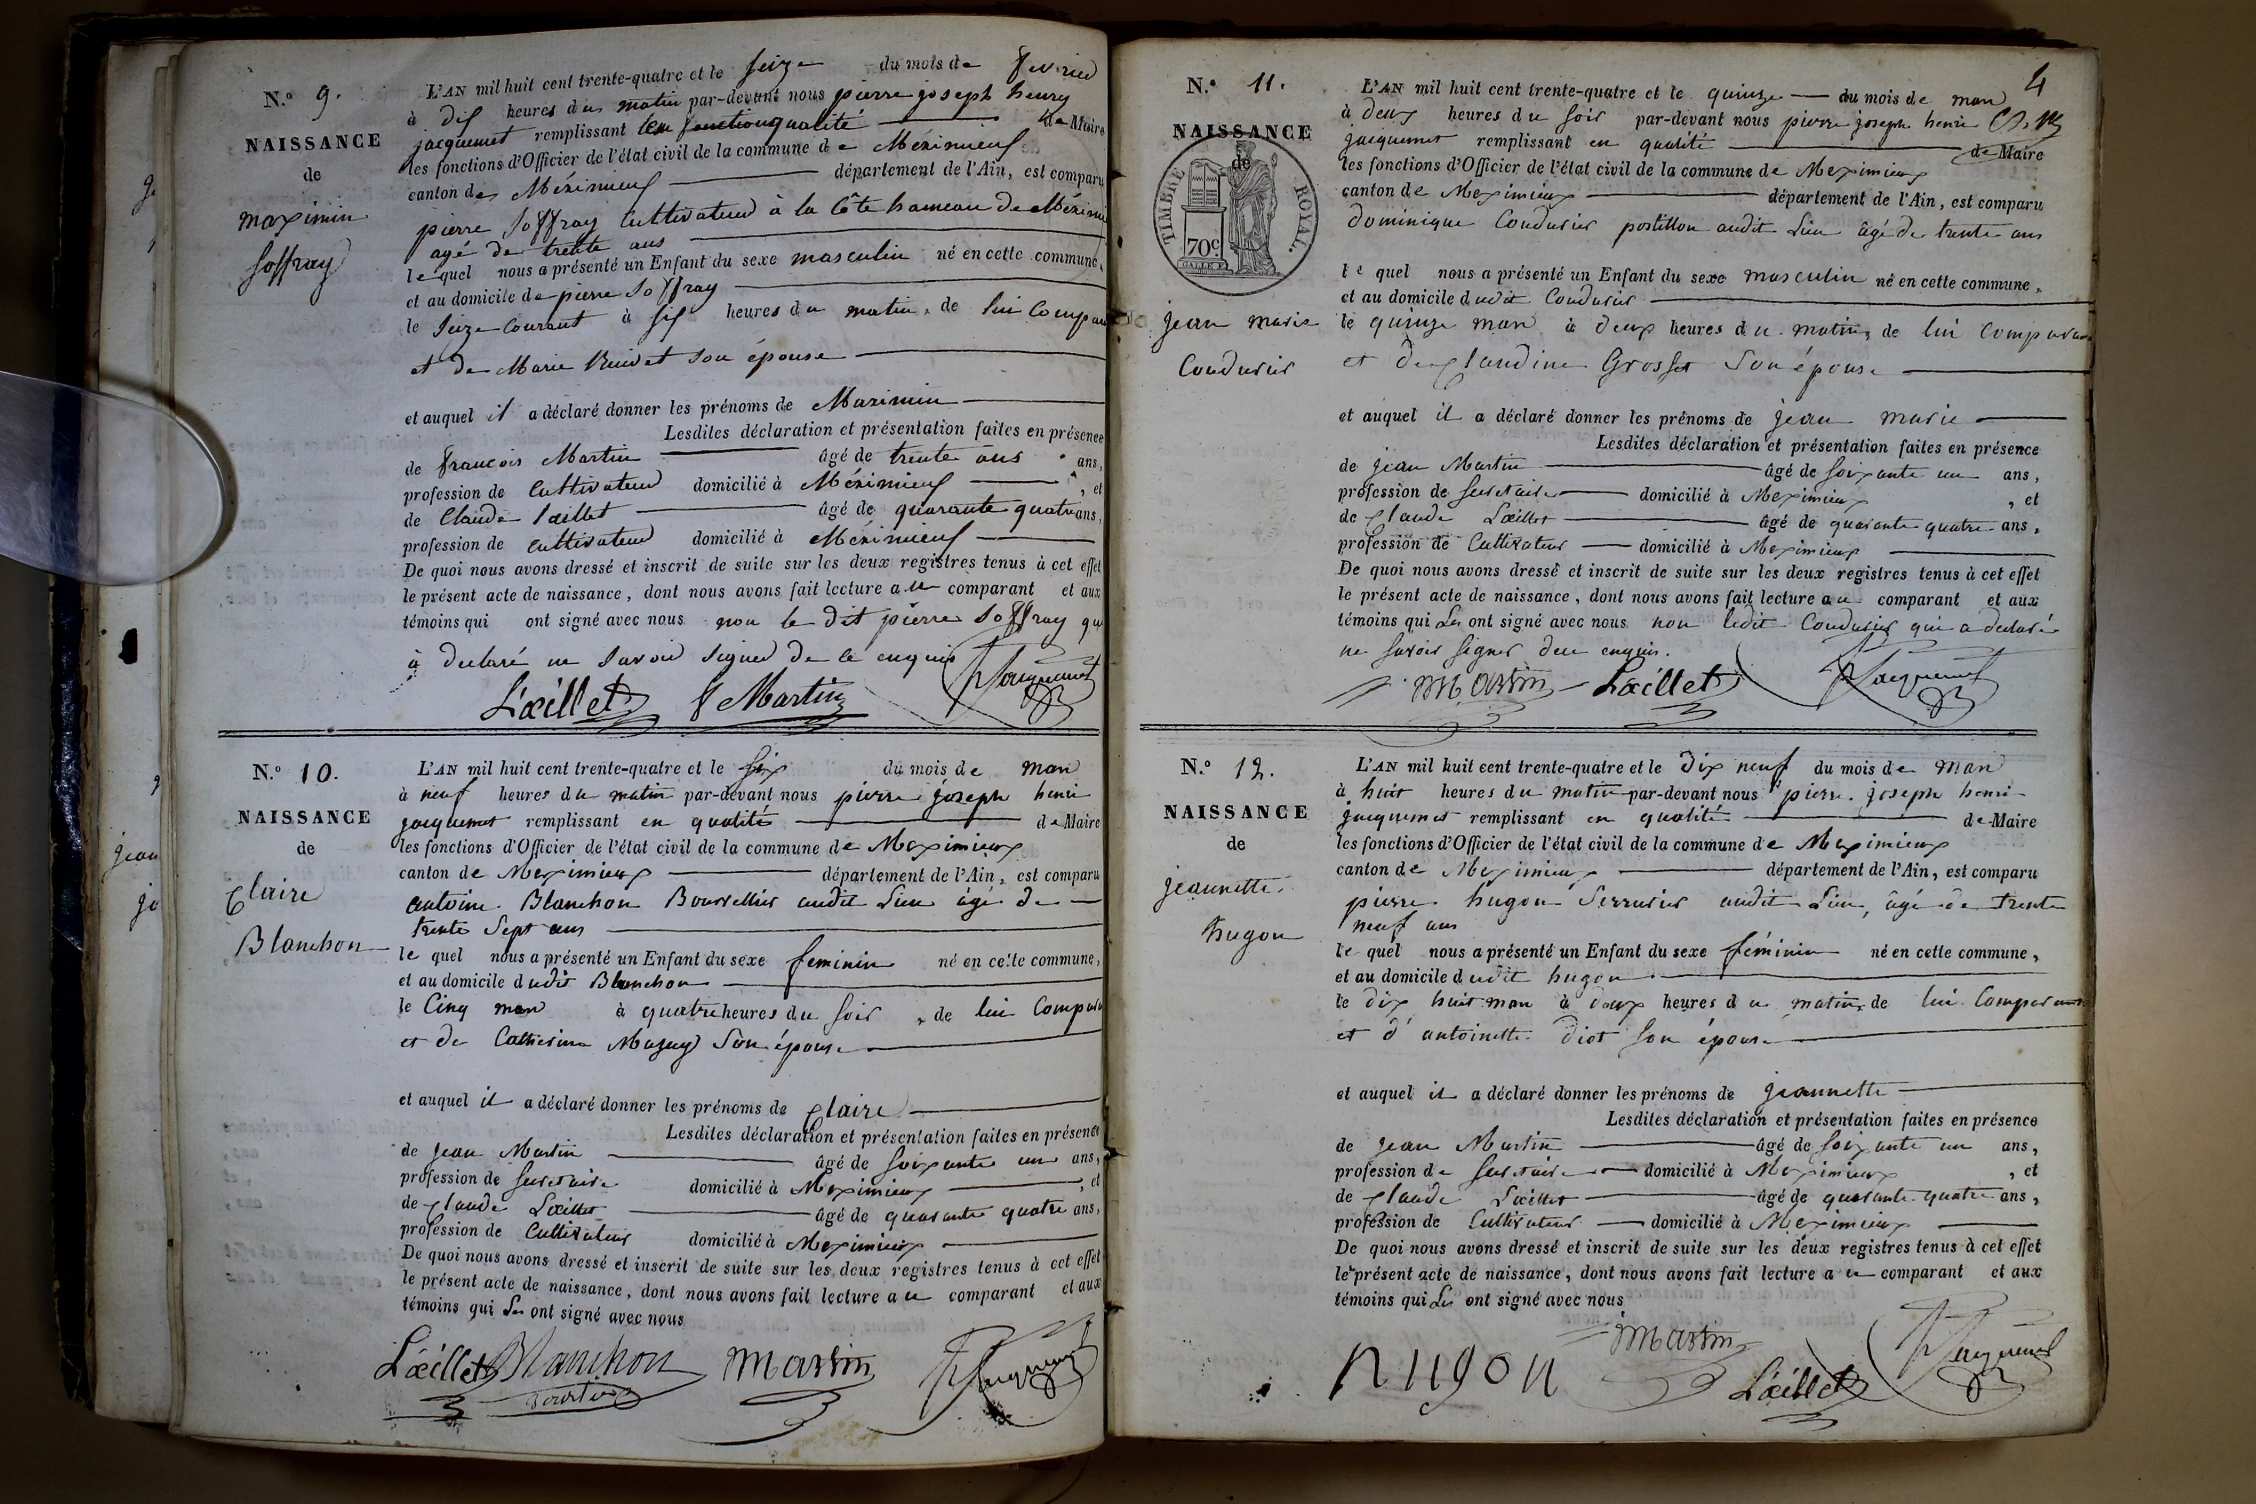 N.o 9.
NAISSANCE
de
maximin
soffray
L'AN mil huit cent trente-quatre et le seize du mois de fevrier
à dix heures du matin par-devant nous pierre joseph henry
jacquemet remplissant en qualité de Maire
les fonctions d'Officier de l'état civil de la commune de Méximieux
canton de Méximieux département de l'Ain, est comparu
pierre soffray cultivateur à la Côte hameau de Méximieux
agé de trente ans
lequel nous a présenté un Enfant du sexe masculin né en cette commune,
et au domicile de pierre soffray
le seize Courant à six heures du matin, de lui Compar
et de Marie son épouse
et auquel il a déclaré donner les prénoms de Maximin
Lesdites déclaration et présentation faites en présence
de françois Martin âgé de trente ans ans,
profession de Cultivateur domicilié à Méximieux , et
de Claude Lœillet âgé de quarante quatre ans,
profession de cultivateur domicilié à Méximieux
De quoi nous avons dressé et inscrit de suite sur les deux registres tenus à cet effet
le présent acte de naissance, dont nous avons fait lecture au comparant et aux
témoins qui ont signé avec nous non le dit pierre soffray qui
à declaré ne savoir signer de ce enquis
Lœillet f Martin Jacquemet
N.o 10.
NAISSANCE
de
Claire
Blanchon
L'AN mil huit cent trente-quatre et le six du mois de mars
à neuf heures du matin par-devant nous pierre joseph henri
jacquemet remplissant en qualité de Maire
les fonctions d'Officier de l'état civil de la commune de Meximieux
canton de Meximieux département de l'Ain, est comparu
antoine Blanchon Bourrellier audit Lieu âgé de
trente sept ans
le quel nous a présenté un Enfant du sexe feminin né en cette commune,
et au domicile dudit Blanchon
le Cinq mars à quatre heures du soir , de lui Compar
et de Catherine Mazuy son épouse
et auquel il a déclaré donner les prénoms de Claire
Lesdites déclaration et présentation faites en présence
de jean Martin âgé de soixante un ans,
profession de secretaire domicilié à Meximieux , et
de Claude Lœillet âgé de quarante quatre ans,
profession de Cultivateur domicilié à Meximieux
De quoi nous avons dressé et inscrit de suite sur les deux registres tenus à cet effet
le présent acte de naissance, dont nous avons fait lecture au comparant et aux
témoins qui Les ont signé avec nous
Lœillet Blanchon Martin Jacquemet
4
N.o 11.
NAISSANCE
de
TIMBRE ROYAL.
70c.
jean marie
Coudurier
L'AN mil huit cent trente-quatre et le quinze du mois de mars
à deux heures du soir par-devant nous pierre joseph henri
jacquemet remplissant en qualité de Maire
les fonctions d'Officier de l'état civil de la commune de Meximieux
canton de Meximieux département de l'Ain, est comparu
dominique Coudurier postillon audit Lieu âgé de trente ans
le quel nous a présenté un Enfant du sexe masculin né en cette commune,
et au domicile dudit Coudurier
le quinze mars à deux heures du matin, de lui Comparant
et de Claudine Grosset son épouse
et auquel il a déclaré donner les prénoms de jean marie
Lesdites déclaration et présentation faites en présence
de jean Martin âgé de soixante un ans,
profession de secretaire domicilié à Meximieux , et
de Claude Lœillet âgé de quarante quatre ans,
profession de Cultivateur domicilié à Meximieux
De quoi nous avons dressé et inscrit de suite sur les deux registres tenus à cet effet
le présent acte de naissance, dont nous avons fait lecture au comparant et aux
témoins qui Les ont signé avec nous non ledit Coudurier qui a declaré
ne savoir signer de ce enquis.
Martin Lœillet Jacquemet
N.o 12.
NAISSANCE
de
jeannette
hugon
L'AN mil huit cent trente-quatre et le dix neuf du mois de mars
à huit heures du matin par-devant nous pierre joseph henri
jacquemet remplissant en qualité de Maire
les fonctions d'Officier de l'état civil de la commune de Meximieux
canton de Meximieux département de l'Ain, est comparu
pierre hugon serrurier audit Lieu, âgé de trente
neuf ans
le quel nous a présenté un Enfant du sexe féminin né en cette commune,
et au domicile dudit hugon
le dix huit mars à deux heures du matin, de lui Comparant
et d'antoinette diot son épouse
et auquel il a déclaré donner les prénoms de jeannette
Lesdites déclaration et présentation faites en présence
de jean Martin âgé de soixante un ans,
profession de secretaire domicilié à Meximieux , et
de Claude Lœillet âgé de quarante quatre ans,
profession de Cultivateur domicilié à Meximieux
De quoi nous avons dressé et inscrit de suite sur les deux registres tenus à cet effet
le présent acte de naissance, dont nous avons fait lecture au comparant et aux
témoins qui Les ont signé avec nous
hugon Martin Lœillet Jacquemet